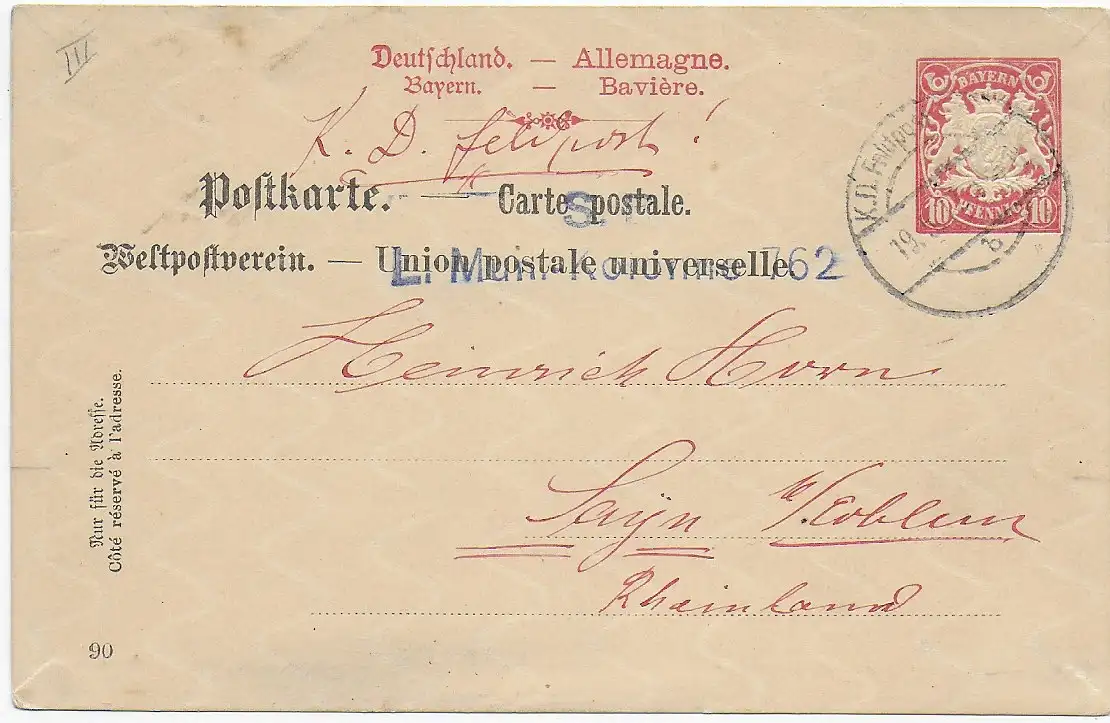 III
Deutschland. — Allemagne.
Bayern. — Bavière.
K. D. Feldpost!
Postkarte. — Carte postale.
S
Weltpostverein. — Union postale universelle.
L. Mun. Kolonne 762
BAYERN
10 PFENNIG 10
K.D. Feldpost
19.
b
Heinrich Horn
Sayn b/Coblenz
Rheinland
Nur für die Adresse.
Côté réservé à l'adresse.
90